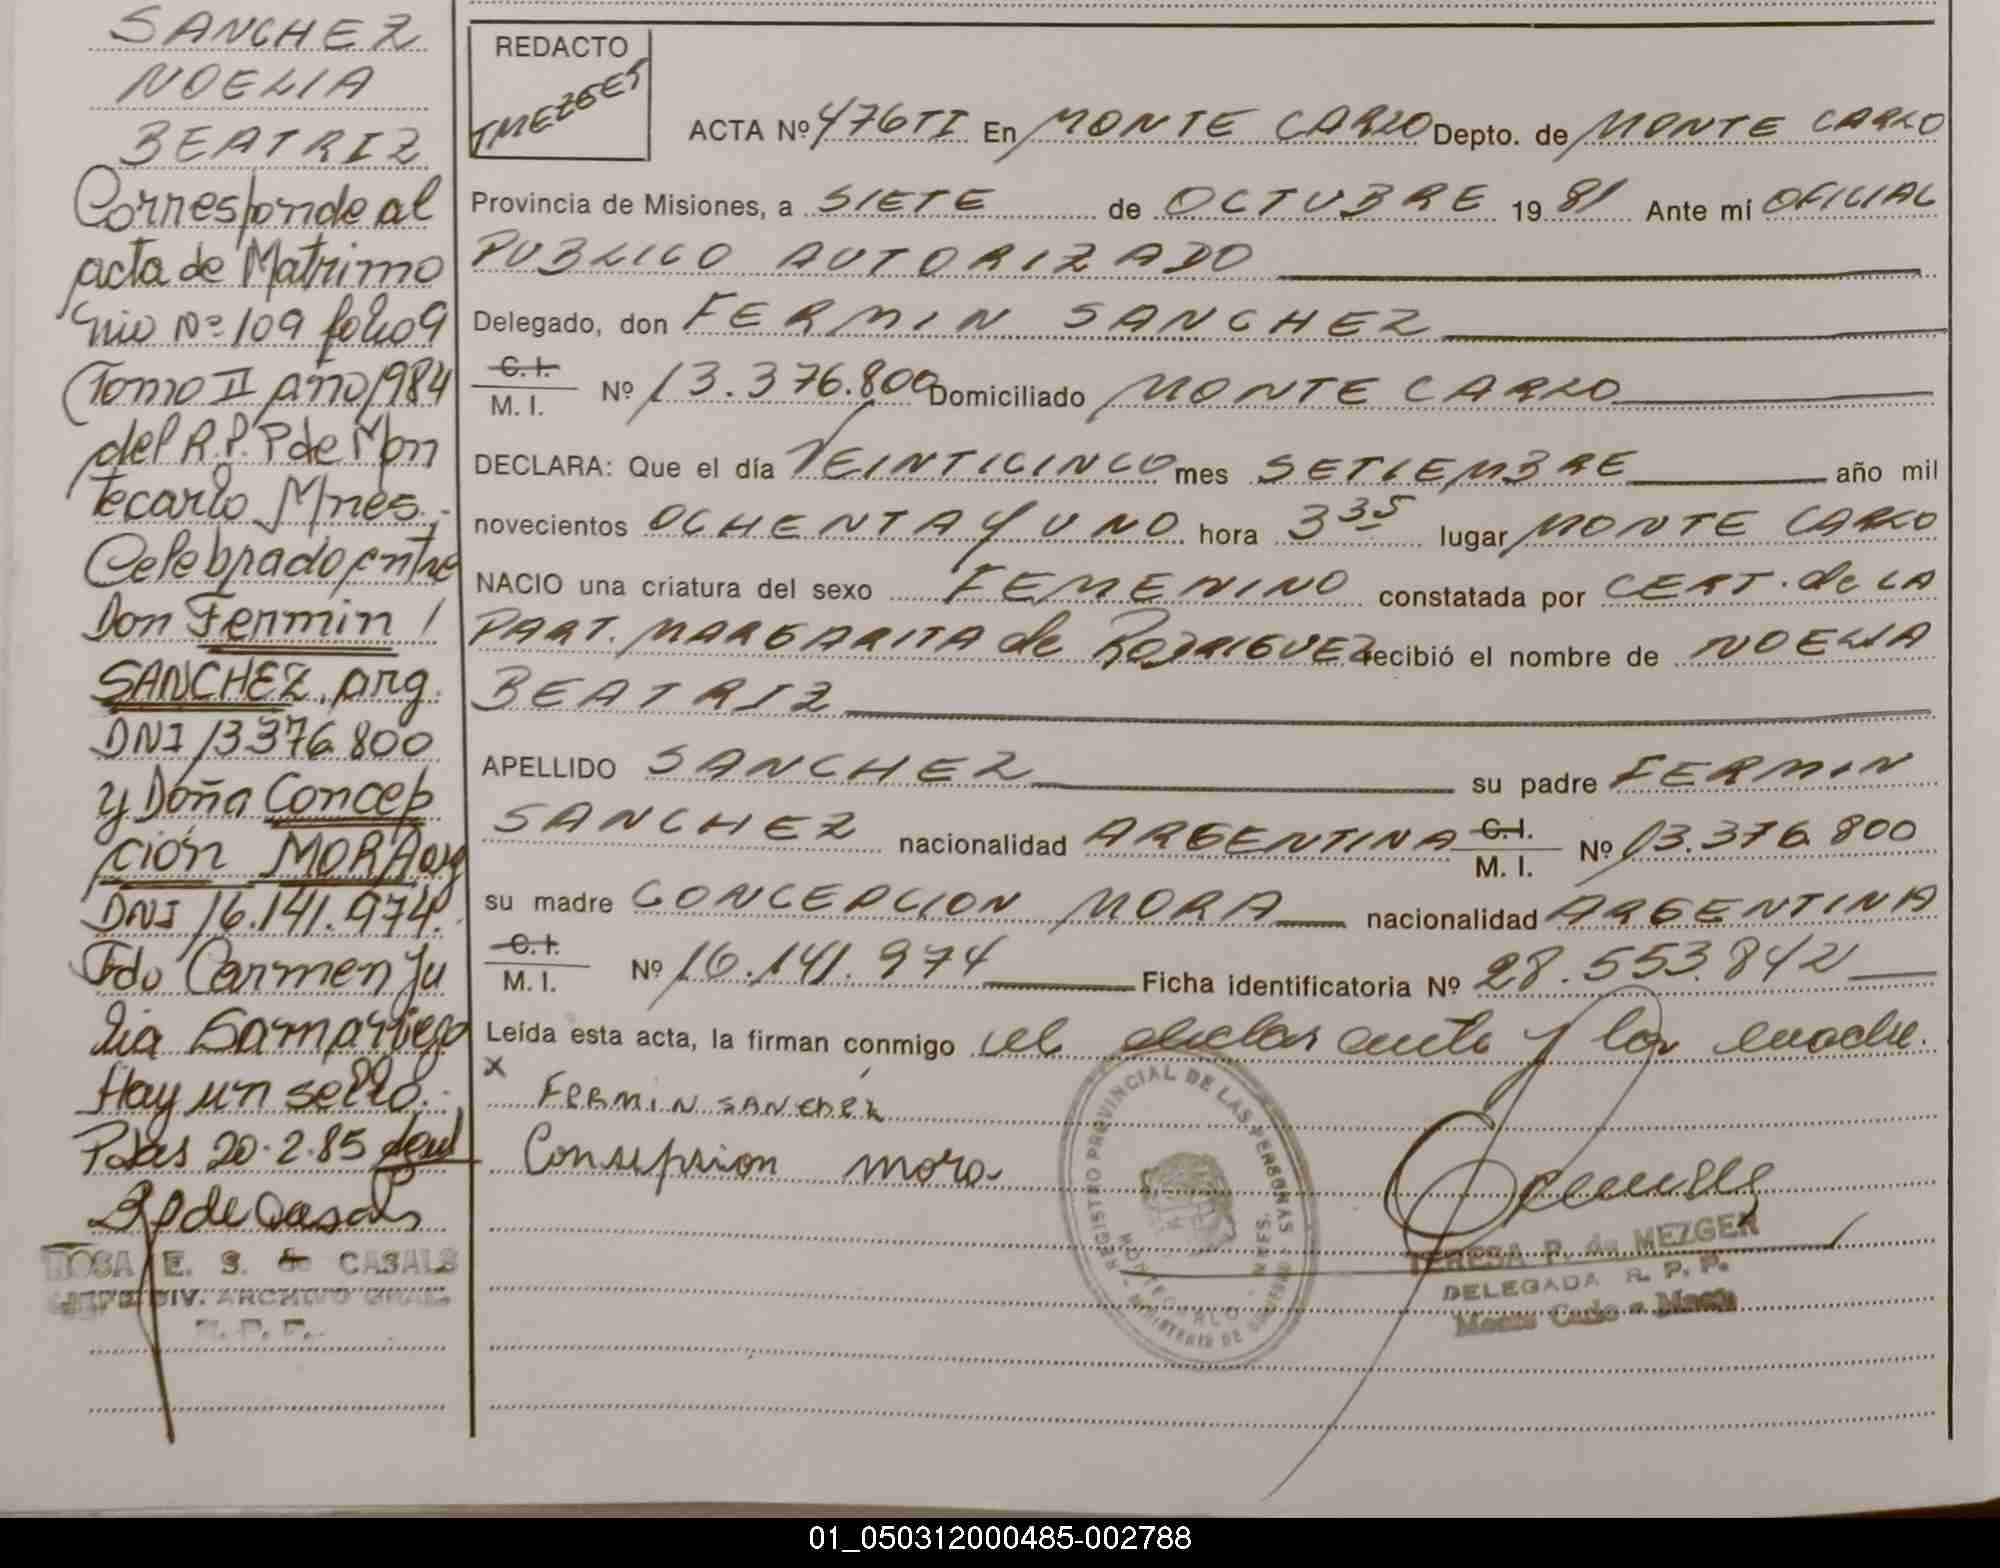 SANCHEZ
NOELIA
BEATRIZ
Corresponde al
acta de Matrimo
nio Nº 109 folio 9
Tomo II año 1984
del R.P.P de Mon
tecarlo Mnes.-
Celebrado entre
Don Fermin
SANCHEZ. arg.
DNI 13376.800
y Doña Concep
ción MORA arg
DNI 16.141.974.
Fdo Carmen Ju
lia Samaniego
Hay un sello.-
Pdas 20.2.85
ROSA E. S. de CASALS
JEFE DIV. ARCHIVO GRAL.
R. P. P.
REDACTO
TMEZGER
ACTA Nº 476TI En MONTE CARLO Depto. de MONTE CARLO
Provincia de Misiones, a SIETE de OCTUBRE 19 81 Ante mí OFICIAL
PUBLICO AUTORIZADO
Delegado, don FERMIN SANCHEZ
C.I. M. I. Nº 13.376.800 Domiciliado MONTE CARLO
DECLARA: Que el día VEINTICINCO mes SETIEMBRE año mil
novecientos OCHENTA Y UNO hora 3 35 lugar MONTE CARLO
NACIO una criatura del sexo FEMENINO constatada por CERT. de LA
PART. MARGARITA de RODRIGUEZ recibió el nombre de NOELIA
BEATRIZ
APELLIDO SANCHEZ su padre FERMIN
SANCHEZ nacionalidad ARGENTINA C.I. M. I. Nº 13.376.800
su madre CONCEPCION MORA nacionalidad ARGENTINA
C.I. M. I. Nº 16.141.974 Ficha identificatoria Nº 28.553.842
Leída esta acta, la firman conmigo el declarante y la madre.
x FERMIN SANCHEZ
Consepsion mora
REGISTRO PROVINCIAL DE LAS PERSONAS
MONTECARLO - MNES.
MINISTERIO DE GOBIERNO
TERESA P. de MEZGER
DELEGADA R. P. P.
Monte Carlo - Mnes
01_050312000485-002788